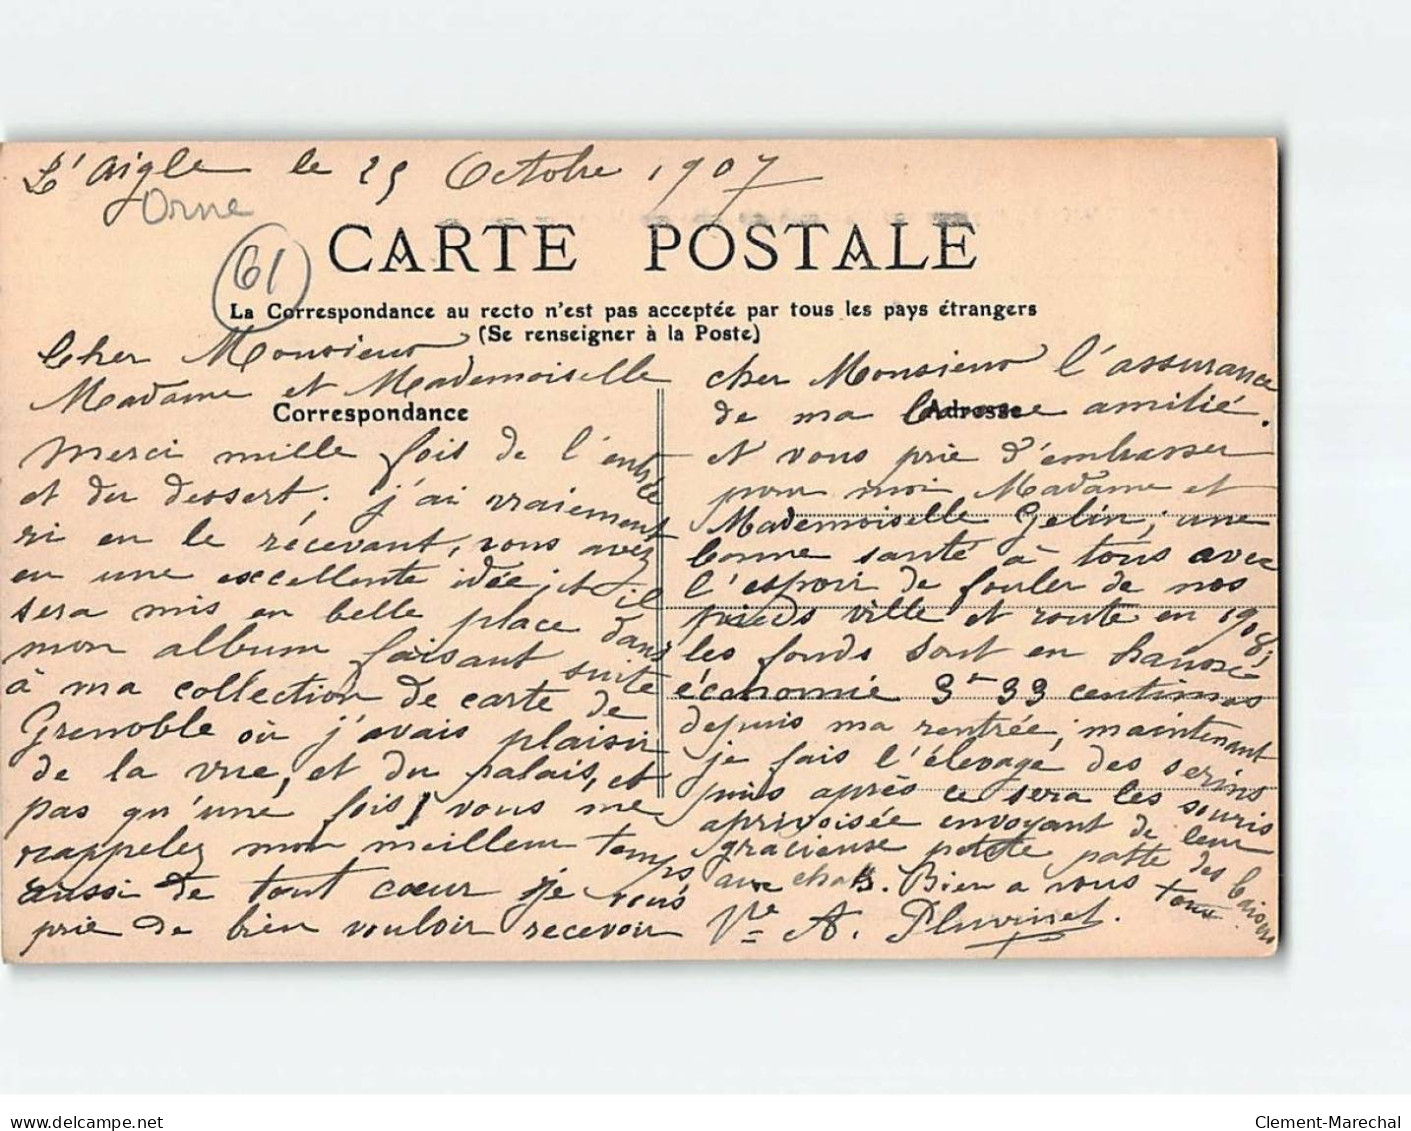 L'Aigle le 25 Octobre 1907
Orne
61
CARTE POSTALE
La Correspondance au recto n'est pas acceptée par tous les pays étrangers
(Se renseigner à la Poste)
Cher Monsieur
Madame et Mademoiselle
Correspondance
Merci mille fois de l'entrée
et du dessert, j'ai vraiement
ri en le récevant, vous avez
eu une excellente idée; et il
sera mis en belle place dans
mon album faisant suite
à ma collection de carte de
Grenoble où j'avais plaisir
de la vue, et du palais, et
pas qu'une fois, vous me
rappelez mon meilleur temps
aussi de tout cœur je vous
prie de bien vouloir recevoir
Adresse
cher Monsieur l'assurance
de ma bonne amitié.
et vous prie d'embrasser
pour moi Madame et
Mademoiselle Gelin; une
bonne santé à tous avec
l'espoir de fouler de nos
pieds ville et route en 1908,
les fonds sont en hausse
économie 3 33 centimes
depuis ma rentrée; maintenant
je fais l'élevage des serins
puis après ce sera les souris
aprivoisée envoyant de leur
gracieuse petite patte des baisers
aux chats. Bien a vous tous
Vve A. Pluvinet.
Clement-Marechal
www.delcampe.net